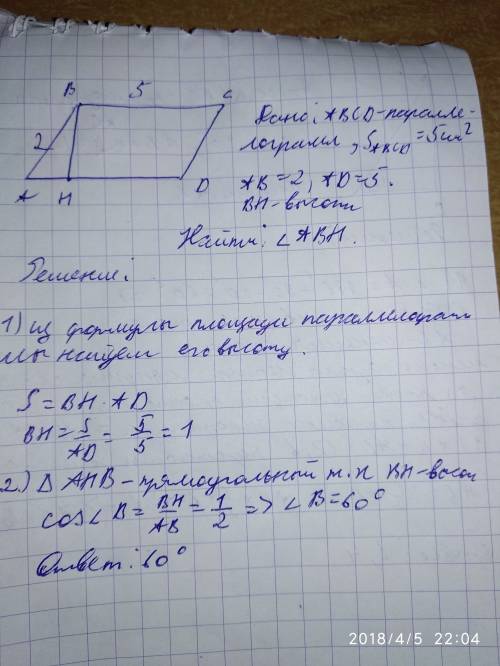 B 5 C
2
A H D
Дано: ABCD-паралле-
лограмм, S ABCD = 5см²
AB=2, AD=5.
BH-высота
Найти: ∠ABH.
Решение:
1) из формулы площади параллелограм
мы найдем его высоту.
S = BH · AD
BH = S/AD = 5/5 = 1
2.) Δ AHB-прямоугольный т.к BH-высот
cos∠B = BH/AB = 1/2 => ∠B=60°
Ответ: 60°
2018/4/5 22:04